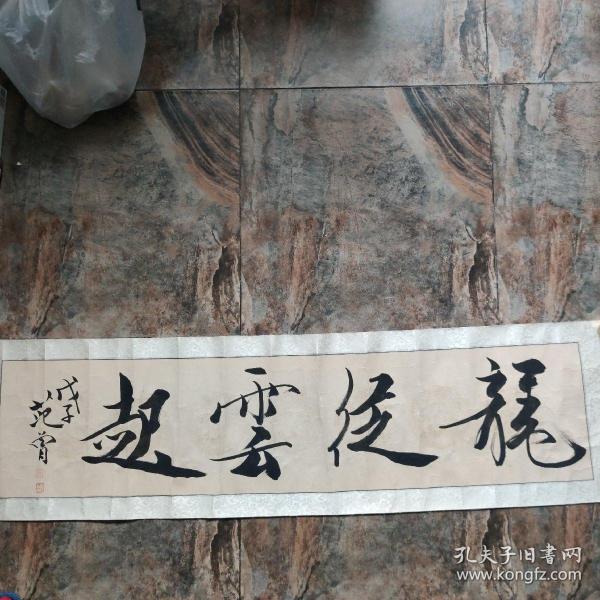 龍從雲起
戊子
范膏
孔夫子旧書网
www.kongfz.com